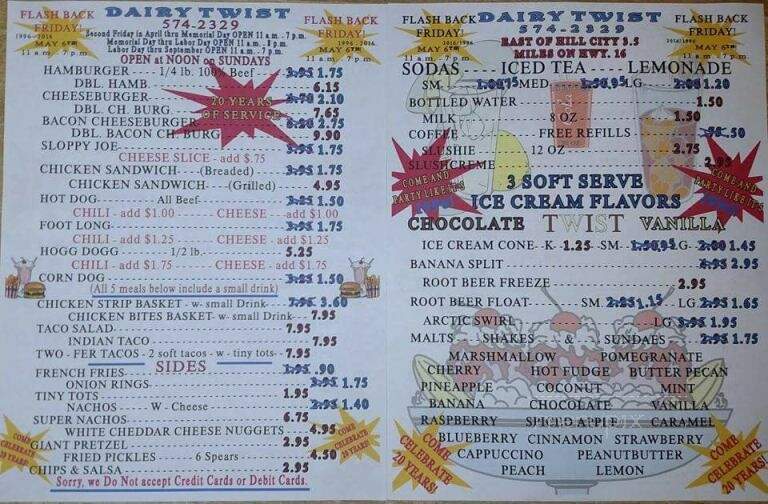 FLASH BACK
FRIDAY!
1996-2016
MAY 6TH
11 a.m. - 7 p.m.
DAIRY TWIST
574-2329
Second Friday in April thru Memorial Day OPEN 11 a.m. - 7 p.m.
Memorial Day thru Labor Day OPEN 11 a.m. - 8 p.m.
Labor Day thru September OPEN 11 a.m. - 7 p.m.
OPEN at NOON on SUNDAYS
FLASH BACK
FRIDAY!
1996-2016
MAY 6TH
11 a.m. - 7 p.m.
20 YEARS
OF SERVICE
HAMBURGER - 1/4 lb. 100% Beef 3.95 1.75
DBL. HAMB. 6.15
CHEESEBURGER 2.10
DBL. CH. BURG 7.65
BACON CHEESEBURGER 2.75
DBL. BACON CH. BURG 9.90
SLOPPY JOE 3.95 1.75
CHEESE SLICE - add $.75
CHICKEN SANDWICH (Breaded) 3.95 1.75
CHICKEN SANDWICH (Grilled) 4.95
HOT DOG All Beef 1.50
CHILI - add $1.00 CHEESE - add $1.00
FOOT LONG 3.95 1.75
CHILI - add $1.25 CHEESE - add $1.25
HOGG DOGG 1/2 lb. 5.25
CHILI - add $1.75 CHEESE - add $1.75
CORN DOG 3.25 1.50
(All 5 meals below include a small drink)
CHICKEN STRIP BASKET - w- small Drink 7.95 3.60
CHICKEN BITES BASKET - w- small Drink 7.95
TACO SALAD 7.95
INDIAN TACO 7.95
TWO - FER TACOS - 2 soft tacos - w - tiny tots - 7.95
SIDES
FRENCH FRIES 1.95 .90
ONION RINGS 3.95 1.75
TINY TOTS 1.95
NACHOS W- Cheese 2.95 1.40
SUPER NACHOS 6.75
WHITE CHEDDAR CHEESE NUGGETS 4.95
GIANT PRETZEL 2.95
FRIED PICKLES 6 Spears 4.50
CHIPS & SALSA 2.95
Sorry, we Do Not accept Credit Cards or Debit Cards.
COME
CELEBRATE
20 YEARS!
COME
CELEBRATE
20 YEARS!
FLASH BACK
FRIDAY!
1996-2016
MAY 6TH
11 a.m. - 7 p.m.
DAIRY TWIST
574-2329
EAST OF HILL CITY 3.5
MILES ON HWY. 16
FLASH BACK
FRIDAY!
1996-2016
MAY 6TH
11 a.m. - 7 p.m.
SODAS ICED TEA LEMONADE
SM. 1.00 .75 MED. 1.50 .95 LG. 2.00 1.20
BOTTLED WATER 1.50
MILK 8 OZ 1.50
COFFEE FREE REFILLS .50
SLUSHIE 12 OZ 2.75
SLUSHCREME 2.95
COME AND
PARTY LIKE IT'S
COME AND
PARTY LIKE IT'S
3 SOFT SERVE
ICE CREAM FLAVORS
CHOCOLATE TWIST VANILLA
ICE CREAM CONE - K - 1.25 - SM - 1.50 .95 LG 2.00 1.45
BANANA SPLIT 2.95
ROOT BEER FREEZE 2.95
ROOT BEER FLOAT SM. 2.25 1.15 LG. 2.95 1.65
ARCTIC SWIRL LG 3.95 1.95
MALTS SHAKES & SUNDAES 2.95 1.75
MARSHMALLOW POMEGRANATE
CHERRY HOT FUDGE BUTTER PECAN
PINEAPPLE COCONUT MINT
BANANA CHOCOLATE VANILLA
RASPBERRY SPICED APPLE CARAMEL
BLUEBERRY CINNAMON STRAWBERRY
CAPPUCCINO PEANUTBUTTER
PEACH LEMON
COME
CELEBRATE
20 YEARS!
COME
CELEBRATE
20 YEARS!